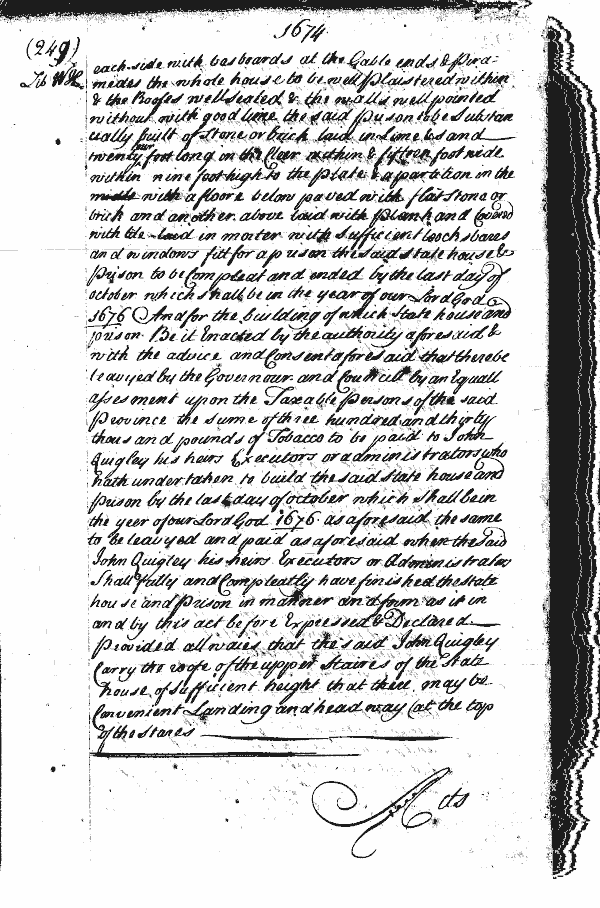 1674
(249)
Lib W H
each side with basboards at the Gable ends & Pira-
medes the whole house to be well Plaistered within
& the Roofes well sealed & the walls well pointed
without with good lime the said Prison to be Substan
tially built of Stone or brick laid in Lime & sand
twenty four foot long on the floor within & fifteen foot wide
within nine foot high to the Plate & a partition in the
midle with a floore below paved with flat Stone or
brick and another above laid with Plank and Covered
with tile laid in morter with sufficient locks barrs
and windows fitt for a prison the said state house &
Prison to be Compleat and ended by the last day of
october which shall be in the year of our Lord God
1676 And for the building of which State house and
prison Be it Enacted by the authority aforesaid &
with the advice and Consent aforesaid that there be
leavyed by the Governour and Councill by an Equall
assesment upon the Taxable Persons of the said
Province the sume of three hundred and thirty
thousand pounds of Tobacco to be paid to John
Quigley his heirs Executors or administrators who
hath undertaken to build the said state house and
Prison by the last day of october which shall be in
the year of our Lord God 1676 as aforesaid the same
to be leavyed and paid as aforesaid when the said
John Quigley his heirs Executors or Administrators
Shall fully and Compleatly have finished the state
house and Prison in manner and form as it is in
and by this act before Expressed & Declared
Provided allwaies that the said John Quigley
Carry the roofe of the upper Staires of the State
house of sufficient height that there may be
Convenient Landing and head way at the top
of the stares
Acts